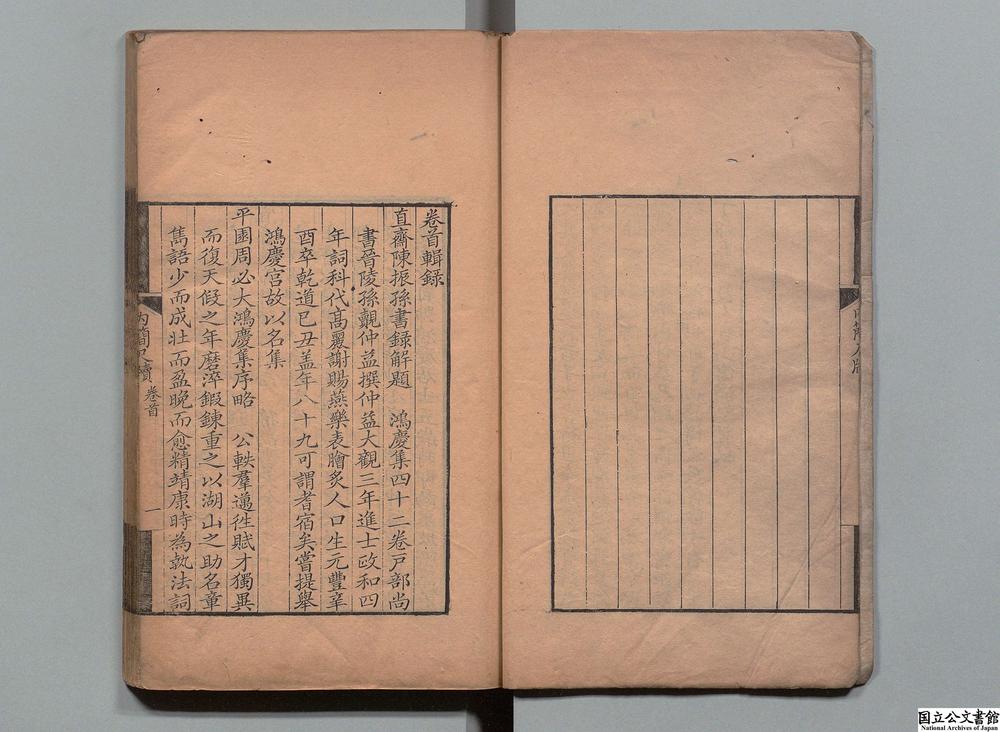 卷首輯録
直齋陳振孫書録解題　鴻慶集四十二卷戸部尚
書晉陵孫覿仲益撰仲益大觀三年進士政和四
年詞科代高麗謝賜燕樂表膾炙人口生元豐辛
酉卒乾道己丑盖年八十九可謂耆宿矣嘗提舉
鴻慶宫故以名集
平園周必大鴻慶集序略　公軼羣邁徃賦才獨異
而復天假之年磨淬鍜錬重之以湖山之助名章
雋語少而成壮而盈晚而愈精靖康時為執法詞
内簡尺牘 卷首 一
国立公文書館
National Archives of Japan